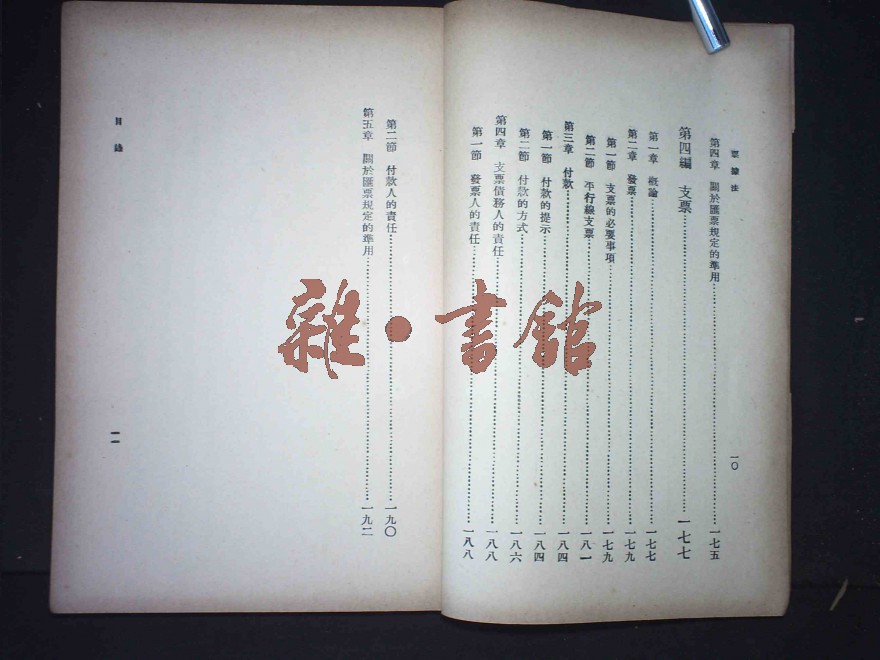 票據法
第四章 關於匯票規定的準用……一七五
第四編 支票……一七七
第一章 概論……一七七
第二章 發票……一七九
第一節 支票的必要事項……一七九
第二節 平行線支票……一八一
第三章 付款……一八四
第一節 付款的提示……一八四
第二節 付款的方式……一八六
第四章 支票債務人的責任……一八八
第一節 發票人的責任……一八八
一〇
第二節 付款人的責任……一九〇
第五章 關於匯票規定的準用……一九二
目錄
一一
雜·書館